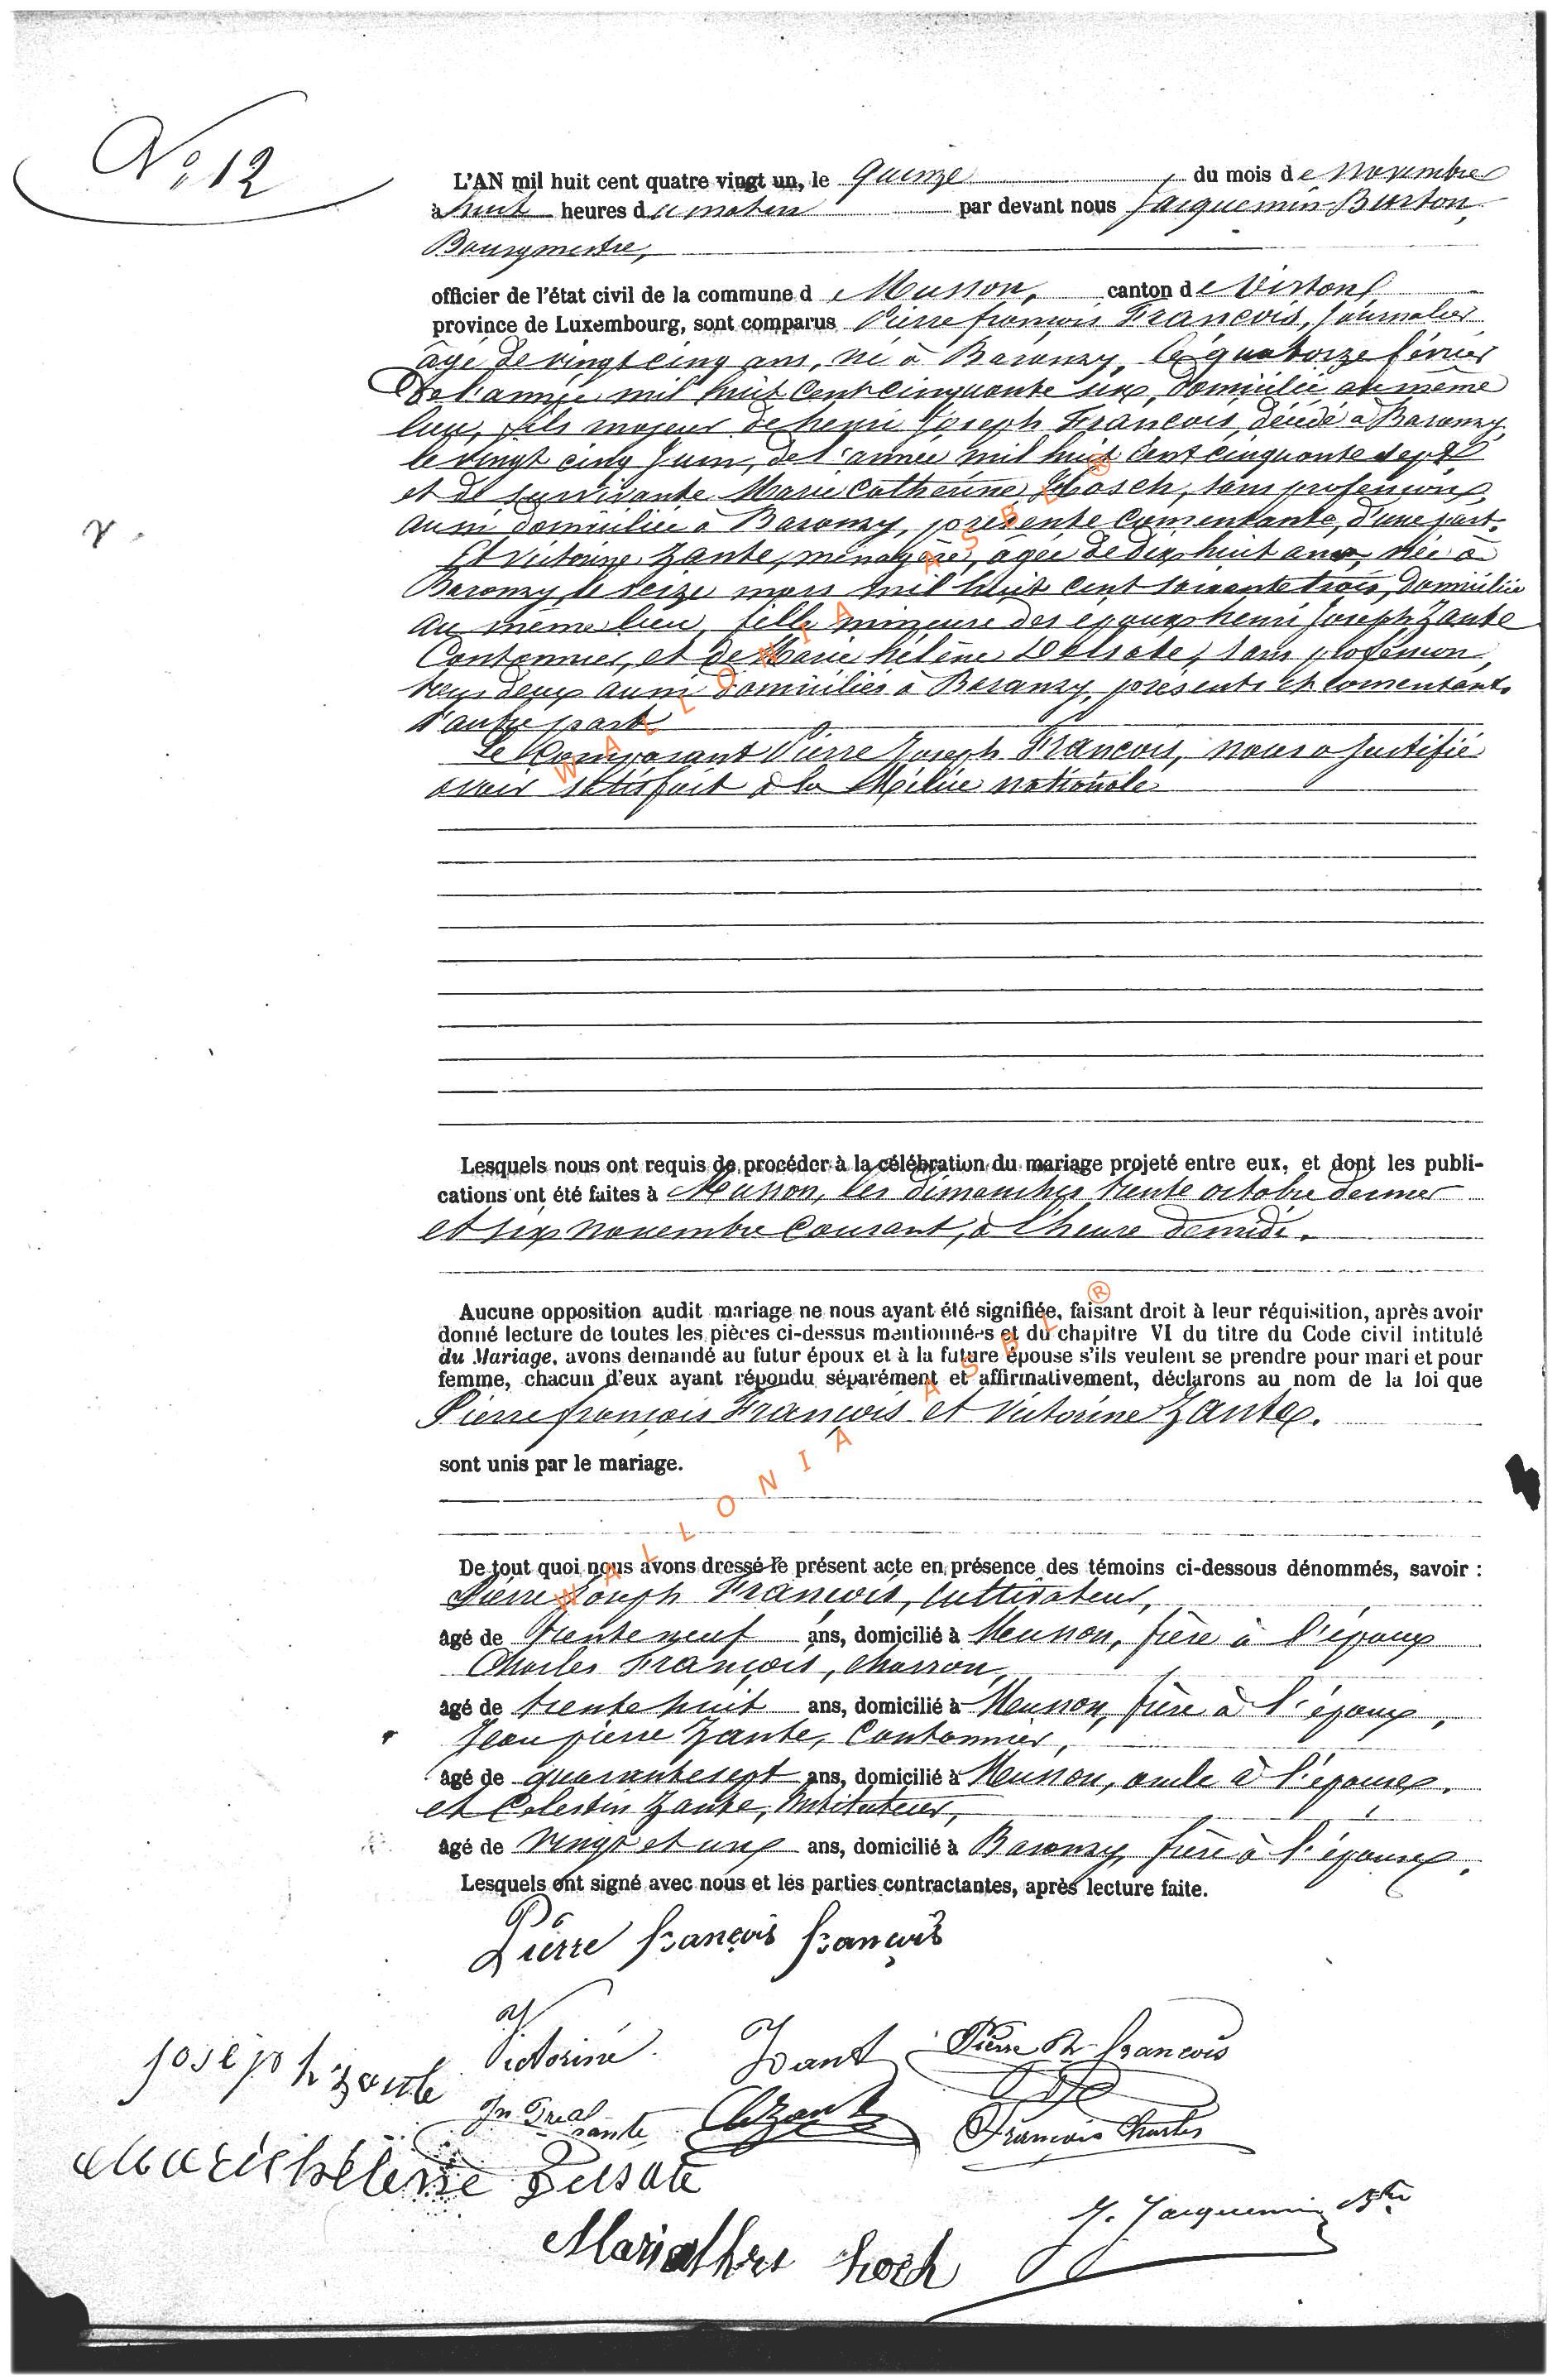 N° 12
L'AN mil huit cent quatre vingt un, le quinze du mois de novembre
à huit heures du matin par devant nous Jacquemin-Burton,
Bourgmestre,
officier de l'état civil de la commune de Musson, canton de Virton
province de Luxembourg, sont comparus Pierre françois François, Journalier
âgé de vingt cinq ans, né à Baranzy, le quatorze février
de l'année mil huit cent cinquante six, domicilié au même
lieu, fils majeur de henri Joseph François, décédé à Baranzy,
le vingt cinq Juin, de l'année mil huit cent cinquante sept
et de survivante Marie Catherine Hosch, sans profession,
aussi domiciliée à Baranzy, présente consentante, d'une part.
Et Victorine Zante, ménagère, âgée de dix huit ans, née à
Baranzy, le seize mars mil huit cent soixante trois, domiciliée
au même lieu, fille mineure des époux henri Joseph Zante
Cantonnier, et de Marie hélène Delsate, sans profession,
tous deux aussi domiciliés à Baranzy, présents et consentants
d'autre part.
Le Comparant Pierre Joseph François, nous a justifié
avoir satisfait à la Milice nationale
Lesquels nous ont requis de procéder à la célébration du mariage projeté entre eux, et dont les publi-
cations ont été faites à Musson, les dimanches trente octobre dernier
et six novembre courant, à l'heure de midi.
Aucune opposition audit mariage ne nous ayant été signifiée, faisant droit à leur réquisition, après avoir
donné lecture de toutes les pièces ci-dessus mentionnées et du chapitre VI du titre du Code civil intitulé
du Mariage, avons demandé au futur époux et à la future épouse s'ils veulent se prendre pour mari et pour
femme, chacun d'eux ayant répondu séparément et affirmativement, déclarons au nom de la loi que
Pierre françois François et Victorine Zante.
sont unis par le mariage.
De tout quoi nous avons dressé le présent acte en présence des témoins ci-dessous dénommés, savoir :
Pierre Joseph François, cultivateur,
âgé de trente neuf ans, domicilié à Musson, frère à l'époux
Charles François, charron,
âgé de trente huit ans, domicilié à Musson, frère à l'époux,
Jean pierre Zante, Cantonnier,
âgé de quarante sept ans, domicilié à Musson, oncle à l'épouse.
et Celestin Zante, Instituteur,
âgé de vingt et un ans, domicilié à Baranzy, frère à l'épouse.
Lesquels ont signé avec nous et les parties contractantes, après lecture faite.
Pierre françois françois
Victorine Zant Pierre françois
joseph zante
zante C Zante François Charles
Marie hélène Delsate
J. Jacquemin Btn
hoch
WALLONIA ASBL ®
WALLONIA ASBL ®